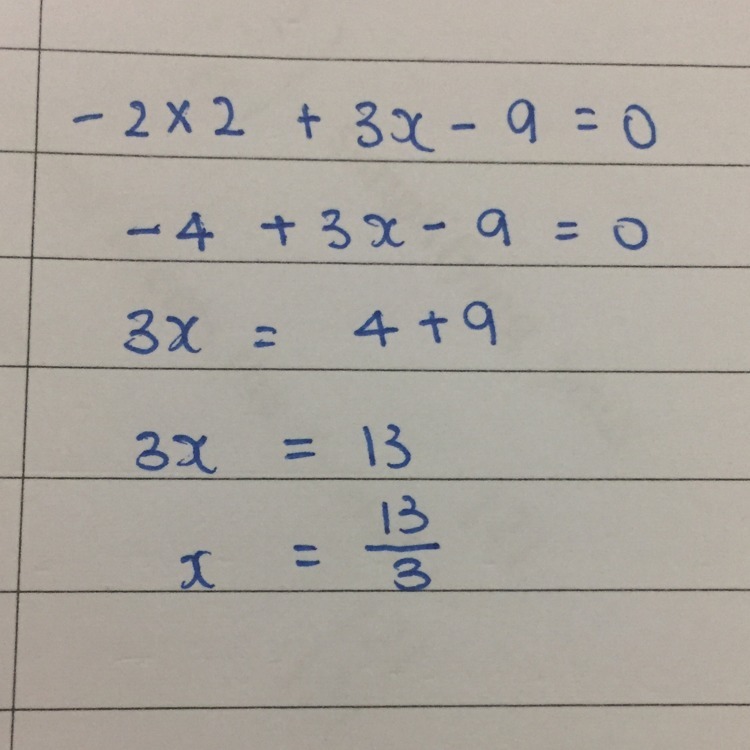 -2×2 + 3x - 9 = 0
-4 + 3x - 9 = 0
3x = 4+9
3x = 13
x = 13/3